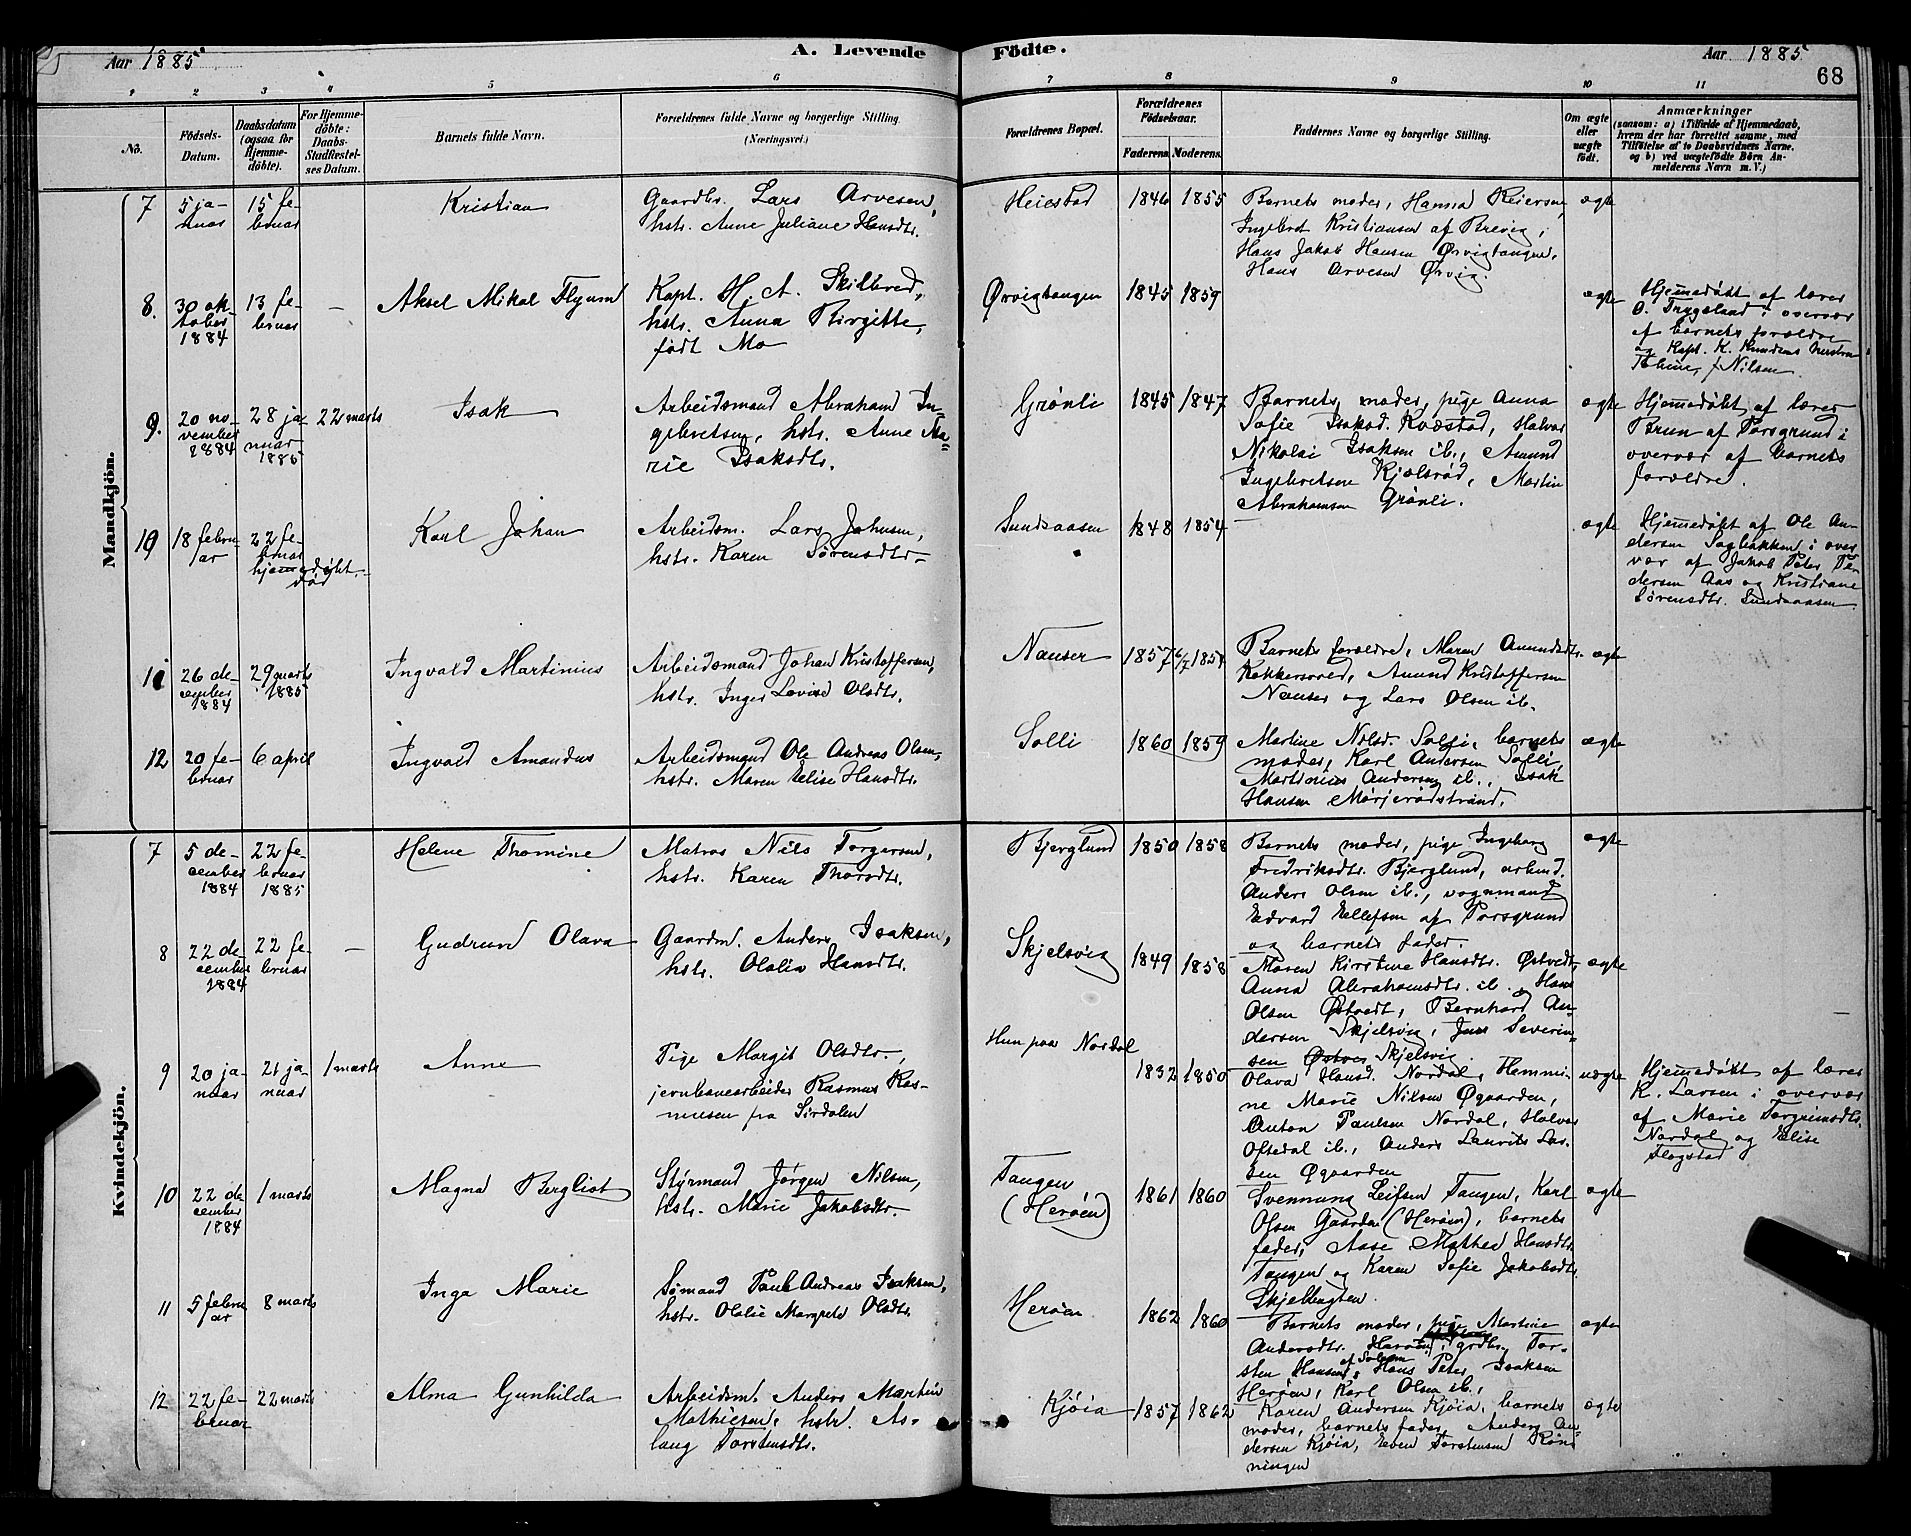 Aar 1885
A. Levende Födte.
Aar 1885
68
1 2 3 4 5 6 7 8 9 10 11
No.
Födsels-
Datum.
Daabsdatum
(ogsaa for
Hjemme-
döbte).
For Hjemme-
döbte:
Daabs-
Stadfæstel-
ses Datum.
Barnets fulde Navn.
Forældrenes fulde Navne og borgerlige Stilling
(Næringsvei.)
Forældrenes Bopæl.
Forældrenes
Födselsaar.
Faderens. Moderens.
Faddernes Navne og borgerlige Stilling.
Om ægte
eller
uægte
födt.
Anmærkninger
(saasom: a) i Tilfælde af Hjemmedaab,
hvem der har forrettet samme, med
Tilföielse af to Daabsvidners Navne.
og b) ved uægtefödte Börn An-
melderens Navn m. V.)
Mandkjön.
7
5 ja-
nuar
15 fe-
bruar
Kristian
Gaardbr. Lars Arvesen,
hstr. Anne Juliane Hansdtr.
Heiestad
1846 1855
Barnets moder, Hanna Reiersen,
Ingebret Kristiansen af Brevig,
Hans Jakob Hansen Ørvigtangen,
Hans Arvesen Ørvig.
ægte
8.
30 ok-
tober
1884
13 fe-
bruar
—
Aksel Mikal Flyum
Kapt. H. A. Skilbred,
hstr. Anna Birgitte,
født Mo
Ørvigtangen
1845 1859
ægte
Hjemmedøbt af lærer
O. Trygsland i overvær
af barnets forældre
og Kapt. K. Knudsens hustru
f. Nilsen.
9.
20 no-
vember
1884
28 ja-
nuar
1885
22 marts
Isak
Arbeidsmand Abraham In-
gebretsen, hstr. Anne Ma-
rie Isaksdtr.
Grønli
1845 1847
Barnets moder, pige Anna
Sofie Isaksd. Kvæstad, Halvor
Nikolai Isaksen ib., Amund
Ingebretsen Kjølsrød, Martin
Abrahamsen Grønli.
ægte
Hjemmedøbt af lærer
Brun af Porsgrund i
overvær af barnets
forældre.
10
18 febru-
ar
22 fe-
bruar
hjemmedøbt.
død
Karl Johan
Arbeidsm. Lars Johnsen,
hstr. Karen Sørensdtr.
Sundsaasen
1848 1854
—
ægte
Hjemmedøbt af Ole An-
dersen Sagbakken i over-
vær af Jakob Peter Pe-
dersen Aas og Kristiane
Sørensdtr. Sundsaasen
11
26 de-
cember
1884
29 marts
1885
Ingvald Martinius
Arbeidsmand Johan Kristoffersen,
hstr. Inger Lovise Olsdtr.
Nauser
1857 6/7 1854
Barnets forældre, Maren Amundsdtr.
Kokkersvold, Amund Kristoffersen
Nauser og Lars Olsen ib.
ægte
12
20 fe-
bruar
6 april
Ingvald Amandus
Arbeidsmand Ole Andreas Olsen,
hstr. Maren Elise Hansdtr.
Solli
1860 1859
Martine Nilsd. Solli, barnets
moder, Karl Andersen Solli,
Martinius Andersen ib., Isak
Hansen Mørjerødstrand.
ægte
Kvindekjön.
7
5 de-
cember
1884
22 fe-
bruar
1885
Helene Thomine
Matros Nils Torgersen,
hstr. Karen Thorsdtr.
Bjerglund
1850 1858
Barnets moder, pige Ingeborg
Fredriksdtr. Bjerglund, arbmd.
Anders Olsen ib., vognmand
Edvard Ellefsen af Porsgrund
og barnets fader.
ægte
8
22 de-
cember
1884
22 fe-
bruar
—
Gudrun Olava
Gaardm. Anders Isaksen,
hstr. Olalia Hansdtr.
Skjelsvig
1849 1858
Maren Kirstine Hansdtr. Østvedt,
Anna Abrahamsdtr. ib., Hans
Olsen Østvedt, Bernhard An-
dersen Skjelsvig, Jens Severin-
sen Østves Skjelsvig.
ægte
9
20 ja-
nuar
21 ja-
nuar
1 marts
Anne
Pige Margit Olsdtr.,
jernbanearbeider Rasmus Ras-
mussen fra Sirdalen
Hun paa Nordal
1832 1850
Olava Hansd. Nordal, Hemmi-
ne Marie Nilsen Øgaarden,
Anton Paulsen Nordal, Halvor
Oftedal ib., Anders Laurits Lar-
sen Øgaarden
uægte
Hjemmedøbt af lærer
K. Larsen i overvær
af Marie Torgrimsdtr.
Nordal og Elise
Flogstad
10
22 de-
cember
1884
1 marts
Magna Bergliot
Styrmand Jørgen Nilsen,
hstr. Marie Jakobsdtr.
Tangen
(Herøen)
1861 1860
Svennung Leifsen Tangen, Karl
Olsen Gaarden (Herøen), barnets
fader, Aase Mathea Hansdtr.
Tangen og Karen Sofie Jakobsdtr.
Skjelbugten.
ægte
11
5 febru-
ar
8 marts
Inga Marie
Sømand Paul Andreas Isaksen,
hstr. Olalie Margrete Olsdtr.
Herøen
1862 1860
Barnets moder, pige Martine
Andersdtr. Herøen, grdbr. Tor-
sten Hansen, af Solum Hans Peter Isaksen
Herøen, Karl Olsen ib.,
ægte
12
22 fe-
bruar
22 marts
Alma Gunhilda
Arbeidsm. Anders Martin
Mathiesen, hstr. As-
laug Torstensdtr.
Kjøia
1857 1862
Karen Andersen Kjøia, barnets
moder, barnets fader, Anders An-
dersen Kjøia, Even Torstensen Røn-
ningen
ægte